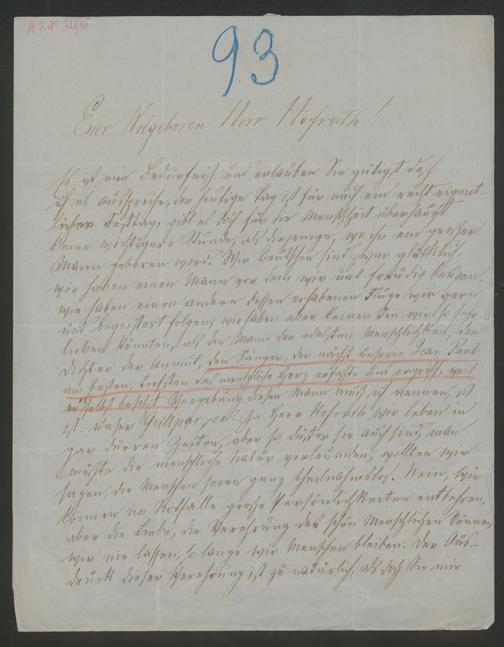 H.I.N. 32916
93
Euer Wolgeboren Herr Hofrath!
Es ist ein Bedürfniß und erlauben Sie gütigst daß
ich es ausspreche, der heutige Tag ist für mich ein recht eigent-
licher Festtag, gibt es doch für die Menschheit überhaupt
keine wichtigere Stunde, als diejenige, wo ihr ein großer
Mann geboren wird. Wir Deutschen sind zwar glücklich,
wir haben einen Mann vor dem wir uns freudig beugen,
wir haben einen andern dessen erhabenen Fluge wir gern
und begeistert folgen, wir haben aber keinen den wir so sehr
lieben könnten, als den Mann der edelsten Menschlichkeit, den
Dichter der Anmut, den Sänger, der nächst unserm Jean Paul
am besten, tiefsten das menschliche Herz erfaßte und ergriff, weil
er selbst besitzt. Vergebung diesen Mann muß ich nennen, es
ist unser Grillparzer. Ja Herr Hofrath, wir leben in
gar dürren Zeiten, aber so düster sie auch sind, man
müßte die menschliche Natur verläumden, wollten wir
sagen, die Menschen seien ganz theilnahmslos. Nein, wir
können im Nothfalle große Persönlichkeiten entbehren,
aber die Liebe, die Verehrung des schön Menschlichen können
wir nie lassen, so lange wir Menschen bleiben. Der Aus-
druck dieser Verehrung ist zu natürlich, als daß Sie mir